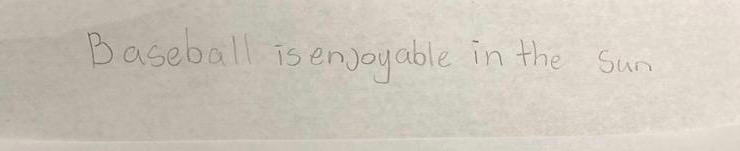 Baseball is enjoyable in the sun